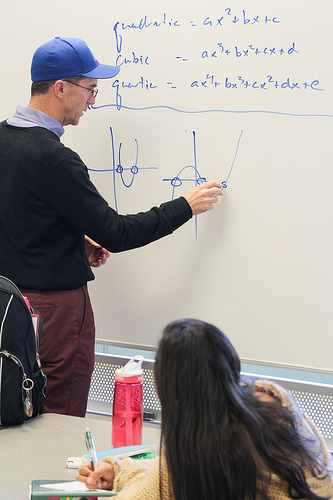 quadratic = ax²+bx+c
cubic – ax³+bx²+cx+d
quartic – ax⁴+bx³+cx²+dx+e